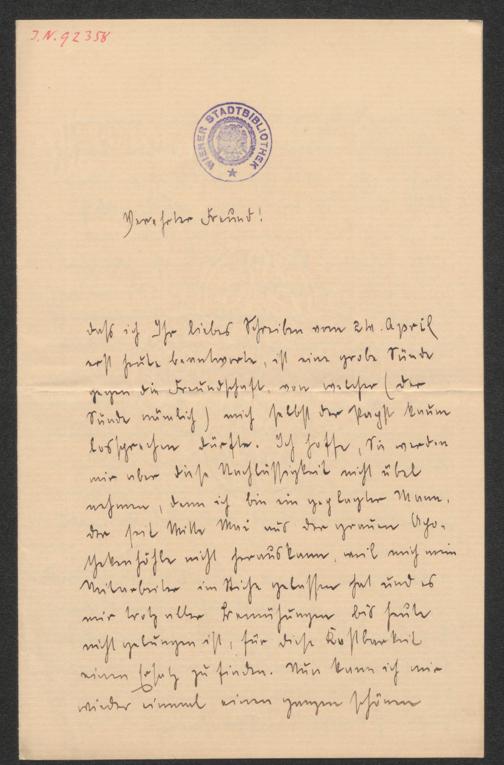 J.N. 92358
WIENER STADTBIBLIOTHEK
Verehrter Freund!
dass ich Ihr liebes Schreiben vom 24. April
erst heute beantworte, ist eine grobe Sünde
gegen die Freundschaft, von welcher (der
Sünde nämlich) mich selbst der Papst kaum
lossprechen dürfte. Ich hoffe, Sie werden
mir aber diese Nachlässigkeit nicht übel
nehmen, denn ich bin ein geplagter Mann,
der seit Mitte Mai aus der grauen Apo-
thekenhöhle nicht herauskann, weil mich mein
Mitarbeiter im Stiche gelassen hat und es
mir trotz aller Bemühungen bis heute
nicht gelungen ist, für diese Kostbarkeit
einen Ersatz zu finden. Nun kann ich mir
wieder einmal einen ganzen schönen